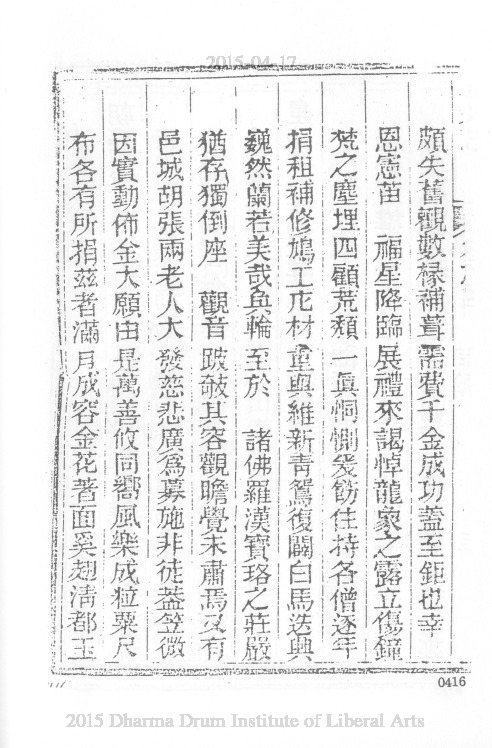 2015-04-17
頗失舊觀數椽補葺需費千金成功蓋至鉅也幸
恩憲苗 福星降臨展禮來謁悼龍象之露立傷鐘
梵之塵埋四顧荒頹一眞恫惻爰飭住持各僧逐年
捐租補修鳩工庀材重興維新青鴛復闢白馬迭興
巍然蘭若美哉奐輪至於 諸佛羅漢寶珞之莊嚴
猶存獨倒座 觀音跛皷其容觀瞻覺未肅焉又有
邑城胡張兩老人大發慈悲廣爲募施非徒葢笠微
因實動佈金大願由是萬善攸同嚮風樂成粒粟尺
布各有所捐茲者滿月成容金花著面奚翅淸都玉
0416
2015 Dharma Drum Institute of Liberal Arts